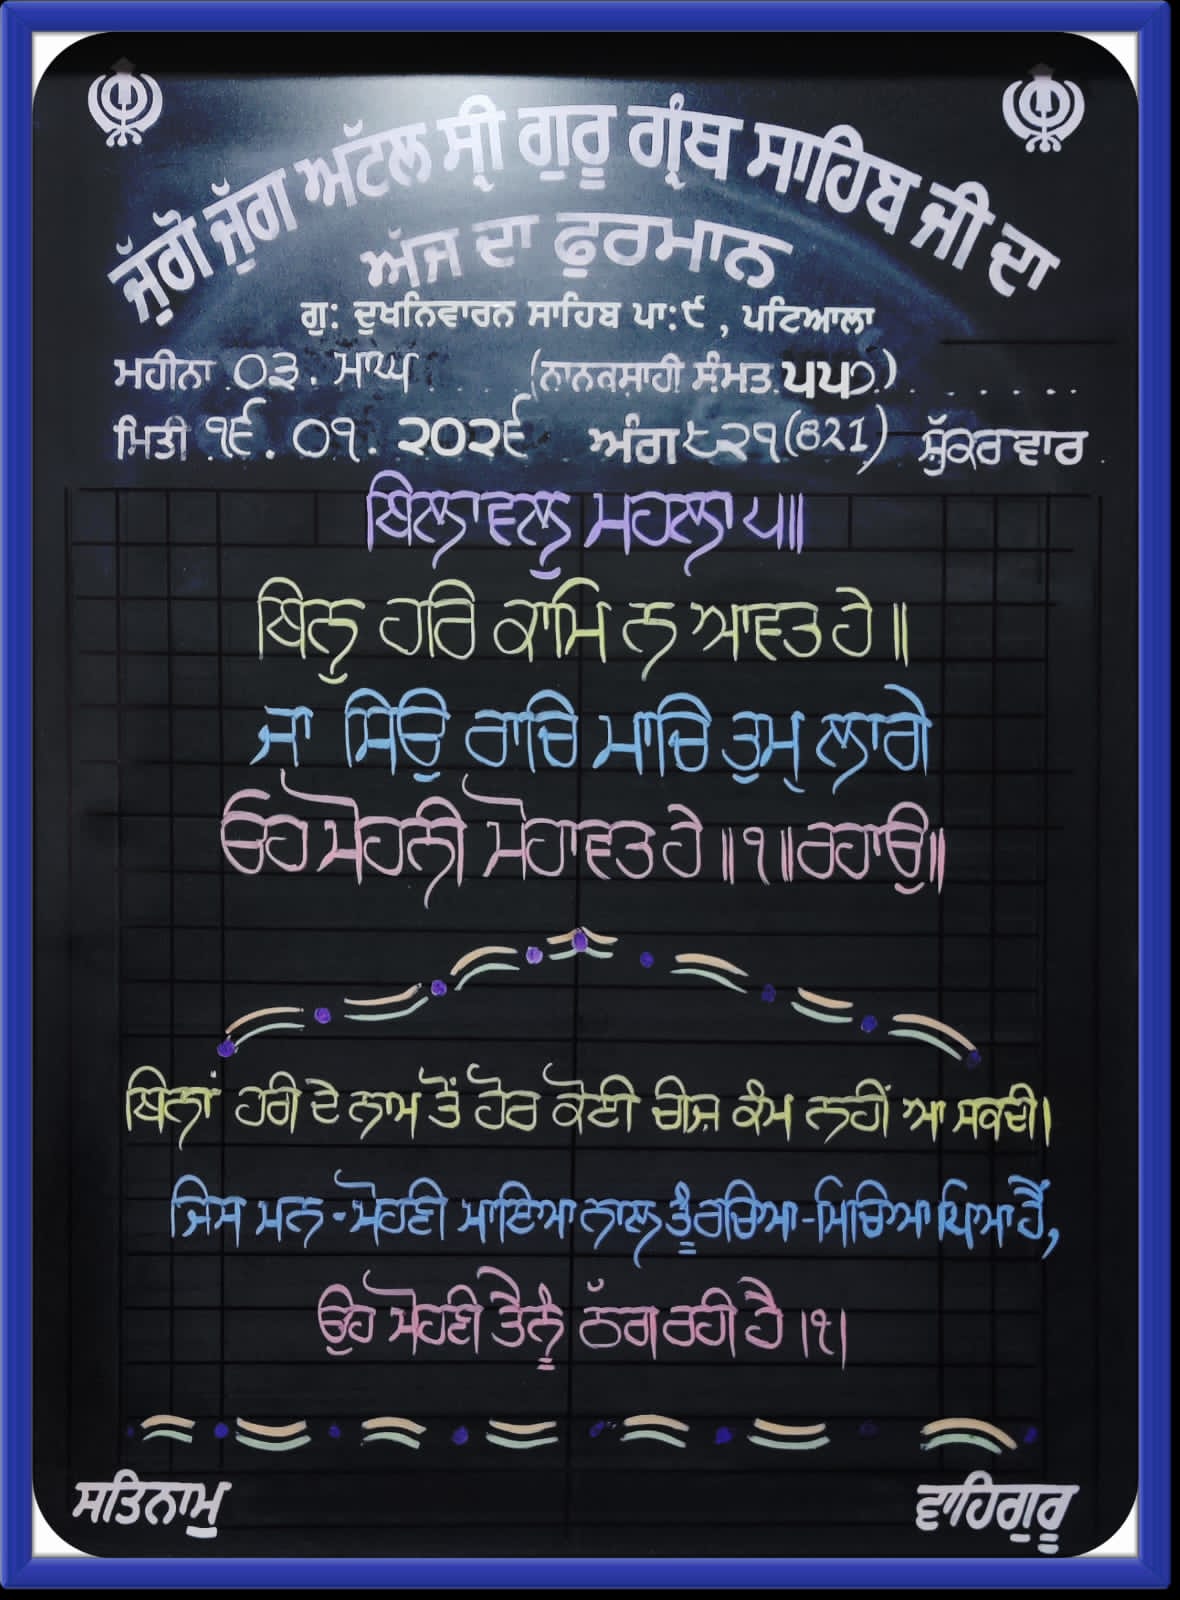 ਜੁੱਗੋ ਜੁੱਗ ਅਟੱਲ ਸ੍ਰੀ ਗੁਰੂ ਗ੍ਰੰਥ ਸਾਹਿਬ ਜੀ ਦਾ
ਅੱਜ ਦਾ ਫੁਰਮਾਨ
ਗੁ: ਦੁਖਨਿਵਾਰਨ ਸਾਹਿਬ ਪਾ:੯ , ਪਟਿਆਲਾ
ਮਹੀਨਾ ੦੩. ਮਾਘ (ਨਾਨਕਸ਼ਾਹੀ ਸੰਮਤ ੫੫੭)
ਮਿਤੀ ੧੬. ੦੧. ੨੦੨੬ ਅੰਗ ੮੨੧ (821) ਸ਼ੁੱਕਰਵਾਰ
ਬਿਲਾਵਲੁ ਮਹਲਾ ੫॥
ਬਿਨੁ ਹਰਿ ਕਾਮਿ ਨ ਆਵਤ ਹੇ ॥
ਜਾ ਸਿਉ ਰਾਚਿ ਮਾਚਿ ਤੁਮ੍ ਲਾਗੇ
ਓਹ ਮੋਹਨੀ ਮੋਹਾਵਤ ਹੇ ॥੧॥ ਰਹਾਉ॥
ਬਿਨਾਂ ਹਰੀ ਦੇ ਨਾਮ ਤੋਂ ਹੋਰ ਕੋਈ ਚੀਜ਼ ਕੰਮ ਨਹੀਂ ਆ ਸਕਦੀ।
ਜਿਸ ਮਨ-ਮੋਹਣੀ ਮਾਇਆ ਨਾਲ ਤੂੰ ਰਚਿਆ-ਮਿਚਿਆ ਪਿਆ ਹੈਂ,
ਉਹ ਮੋਹਣੀ ਤੈਨੂੰ ਠੱਗ ਰਹੀ ਹੈ ।੧।
ਸਤਿਨਾਮੁ
ਵਾਹਿਗੁਰੂ